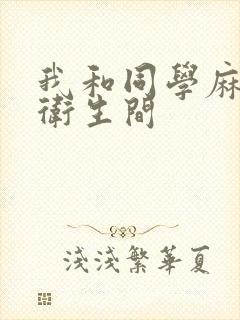 我和同學麻
衛生間
淺淺繁華夏